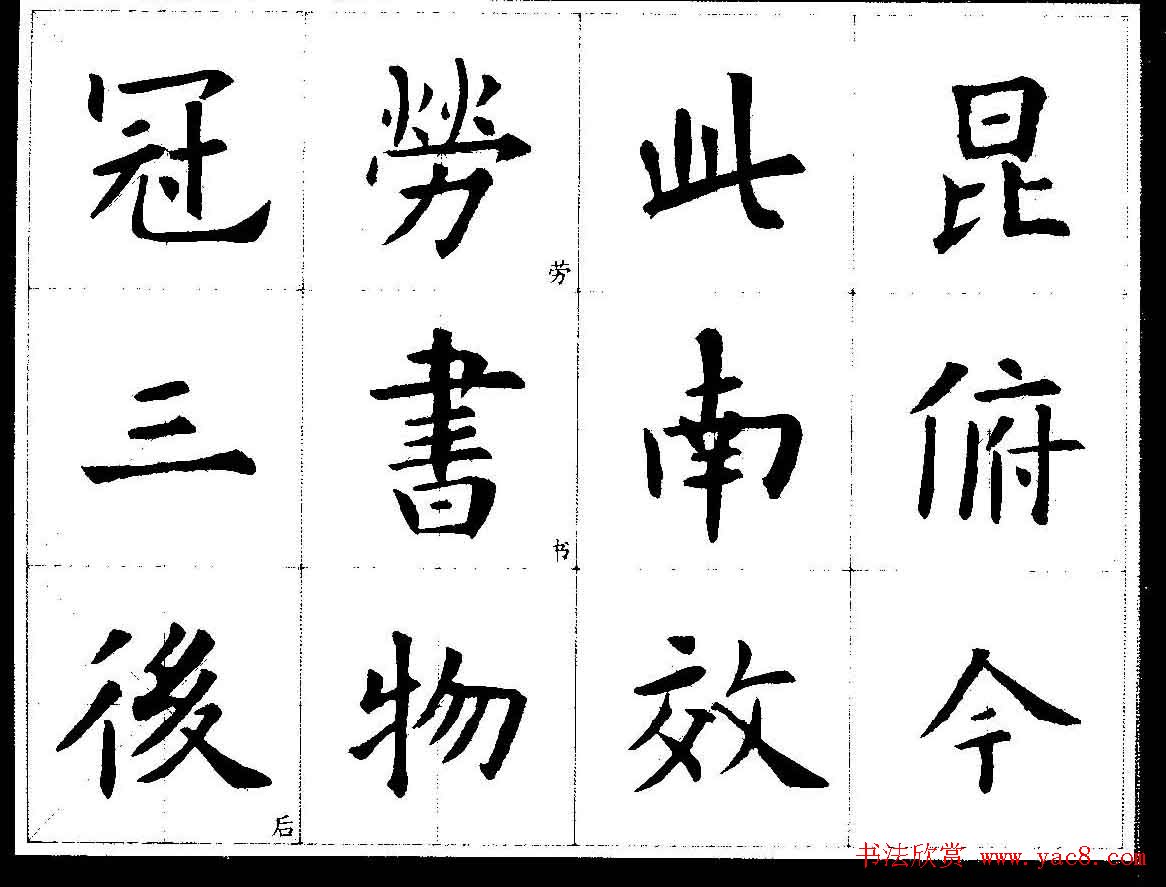 冠勞此昆
劳
三書南俯
书
後物效今
后
书法欣赏 www.yac8.com